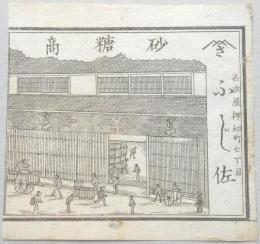 砂糖商
き
ふじ佐
名古屋押切町七丁目